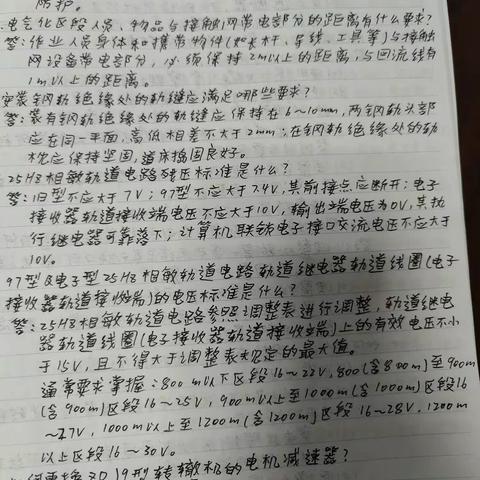 防护。
电气化区段人员、物品与接触网带电部分的距离有什么要求?
答:作业人员身体和携带物件(如长杆、导线、工具等)与接触
网设备带电部分,必须保持2m以上的距离,与回流线有
1m以上的距离。
安装钢轨绝缘处的轨缝应满足哪些要求?
答:装有钢轨绝缘处的轨缝应保持在6~10mm,两钢轨头部
应在同一平面,高低相差不大于2mm;在钢轨绝缘处的轨
枕应保持坚固,道床捣固良好。
25Hz相敏轨道电路残压标准是什么?
答:旧型不应大于7V;97型不应大于7.4V,其前接点应断开;电子
接收器轨道接收端电压不应大于10V,输出端电压为0V,其执
行继电器可靠落下;计算机联锁电子接口交流电压不应大于
10V。
97型及电子型25Hz相敏轨道电路轨道继电器轨道线圈(电子
接收器轨道接收端)的电压标准是什么?
答:25Hz相敏轨道电路参照调整表进行调整,轨道继电
器轨道线圈(电子接收器轨道接收端)上的有效电压不小
于15V,且不得大于调整表规定的最大值。
通常要求掌握:800m以下区段16~22V,800(含800m)至900m
(含900m)区段16~25V,900m以上至1000m(含1000m)区段16
~27V,1000m以上至1200m(含1200m)区段16~28V,1200m
以上区段16~30V。
何更换ZDJ9型转辙机的电机减速器?